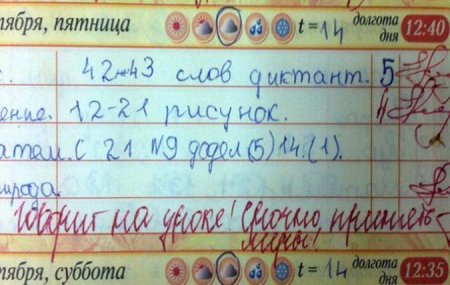 тября, пятница t = 14 долгота дня 12:40
42-43 слов диктант. 5
ение. 12-21 рисунок. 4
атем. С 21 №9 додел (5) 14.(1).
рирода
Говорит на уроке! Срочно примите
меры!
тября, суббота t = 14 долгота дня 12:35